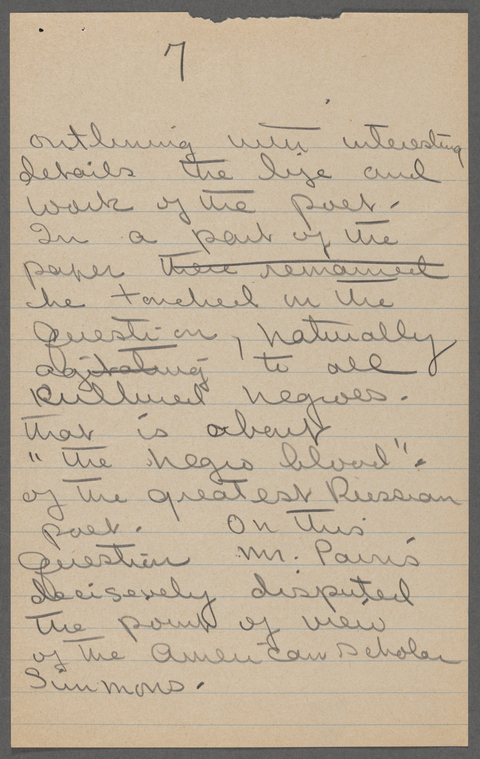 7
outlining with interesting
details the life and
work of the poet.
In a part of the
paper there remained
he touched on the
question, naturally
agitating to all
Kultured negroes.
that is about
"the negro blood".
of the greatest Russian
poet. On this
question Mr. Parris
decisevely disputed
the point of view
of the American scholar
Simmons.